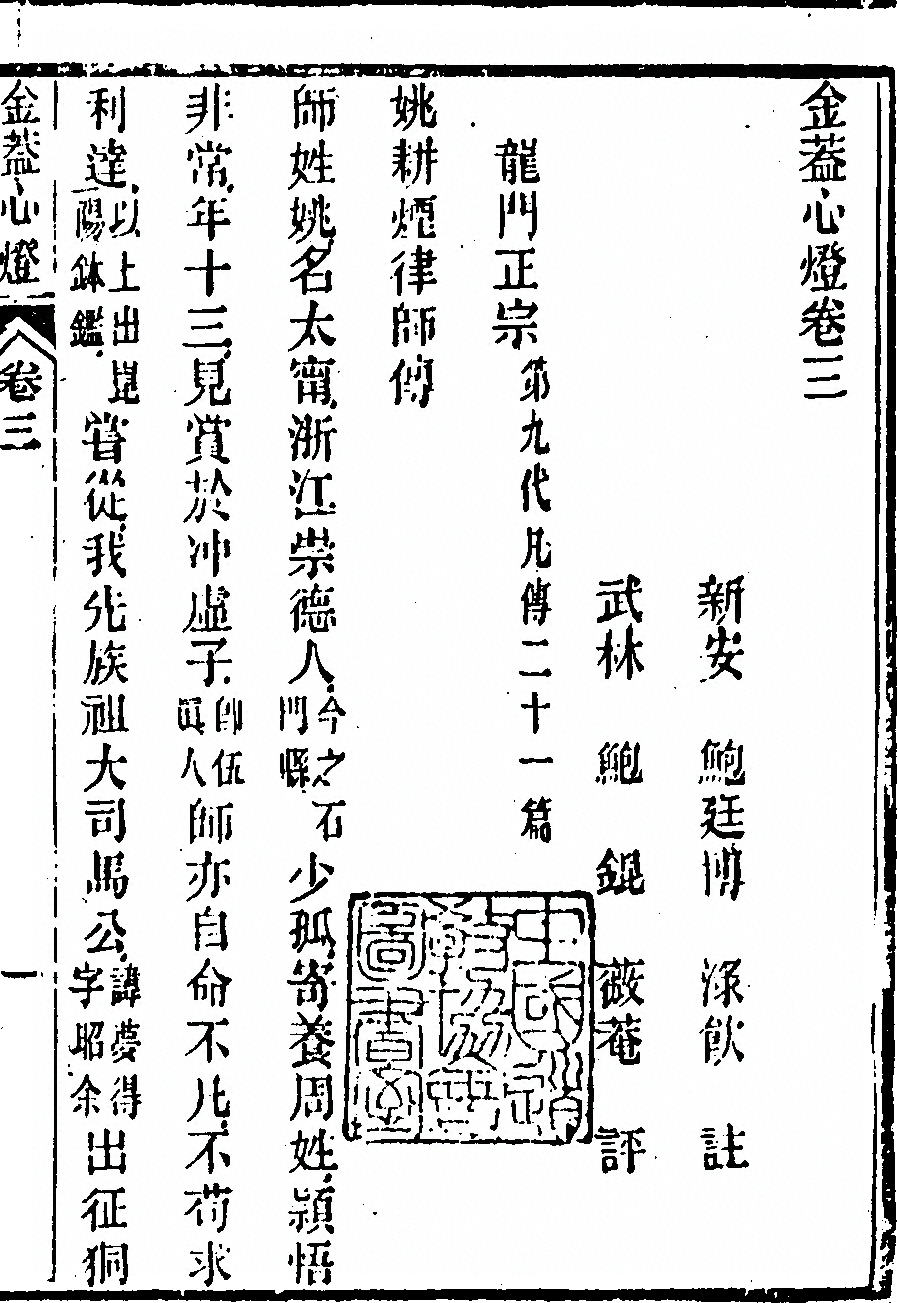 金蓋心燈卷三
新安 鮑廷博 淥飲 註
武林 鮑 錕 薇菴 評
龍門正宗 第九代凡傳二十一篇
姚耕煙律師傳
師姓姚名太甯浙江崇德人今之石門縣少孤寄養周姓穎悟
非常年十三見賞於冲虛子卽伍眞人師亦自命不凡不苟求
利達以上出崑陽鉢鑑甞從我先族祖大司馬公諱夢得字昭余出征狪
金蓋心燈 卷三 一
中國道教協會圖書室